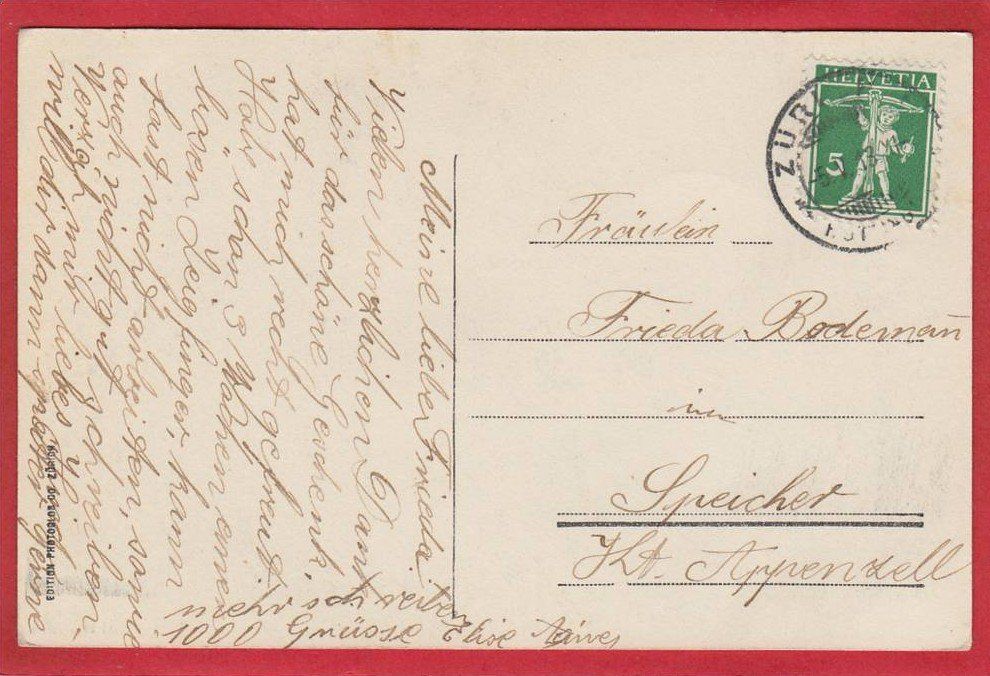 Meine liebe Frieda!
Vielen herzlichen Dank
für das schöne Geschenk,
hat mich recht gefreut
schon 3 Wochen einen
bösen Zeigfinger, kann
fast nicht arbeiten, somit
auch nicht gut schreiben,
mir liebes
will dir dann später gerne
mehr schreiben
1000 Grüsse Elise
EDITION PHOTOGLOB CO. ZÜRICH
HELVETIA
5
ZÜRI
Fräulein
Frieda Bodeman̄
in
Speicher
Kt. Appenzell